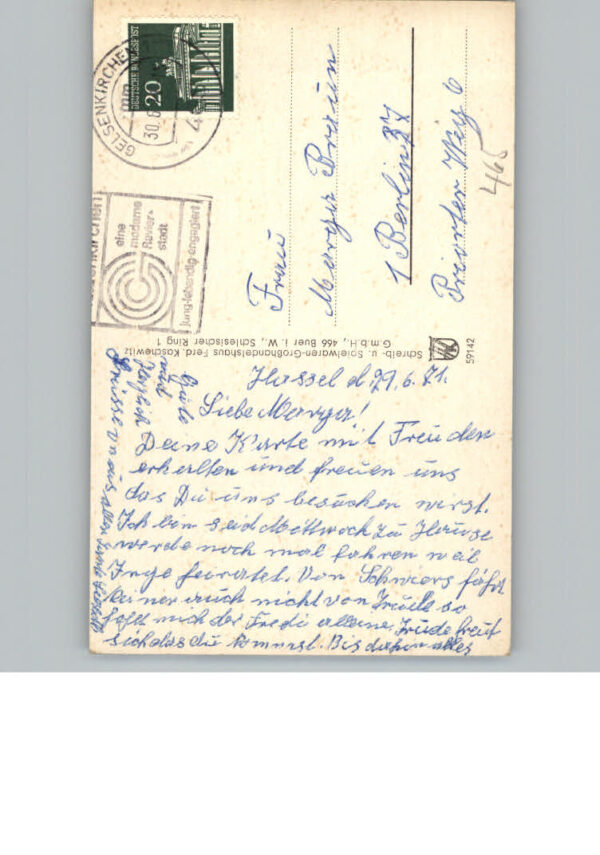 Hassel d. 29.6.71.
Liebe Marga!
Deine Karte mit Freuden
erhalten und freuen uns
das Du uns besuchen wirst.
Ich bin seid Mittwoch zu Hause
werde noch mal fahren weil
Inge heiratet. Von Schwiers fährt
keiner auch nicht von Trude so
holt mich der Fredi alleine, Trude freut
sich das du kommst. Bis dahin alles
Gute
und
Herzlich
Grüsse von uns allen
Frau
Marga Braun
1 Berlin 37
Priorter Weg 6
465
DEUTSCHE BUNDESPOST
20
GELSENKIRCHEN
30.6
eine
moderne
Revier-
stadt
jung-lebendig-engagiert
Schreib- u. Spielwaren-Großhandelshaus Ferd. Koschewitz
G.m.b.H., 466 Buer i. W., Schlesischer Ring 1
59142